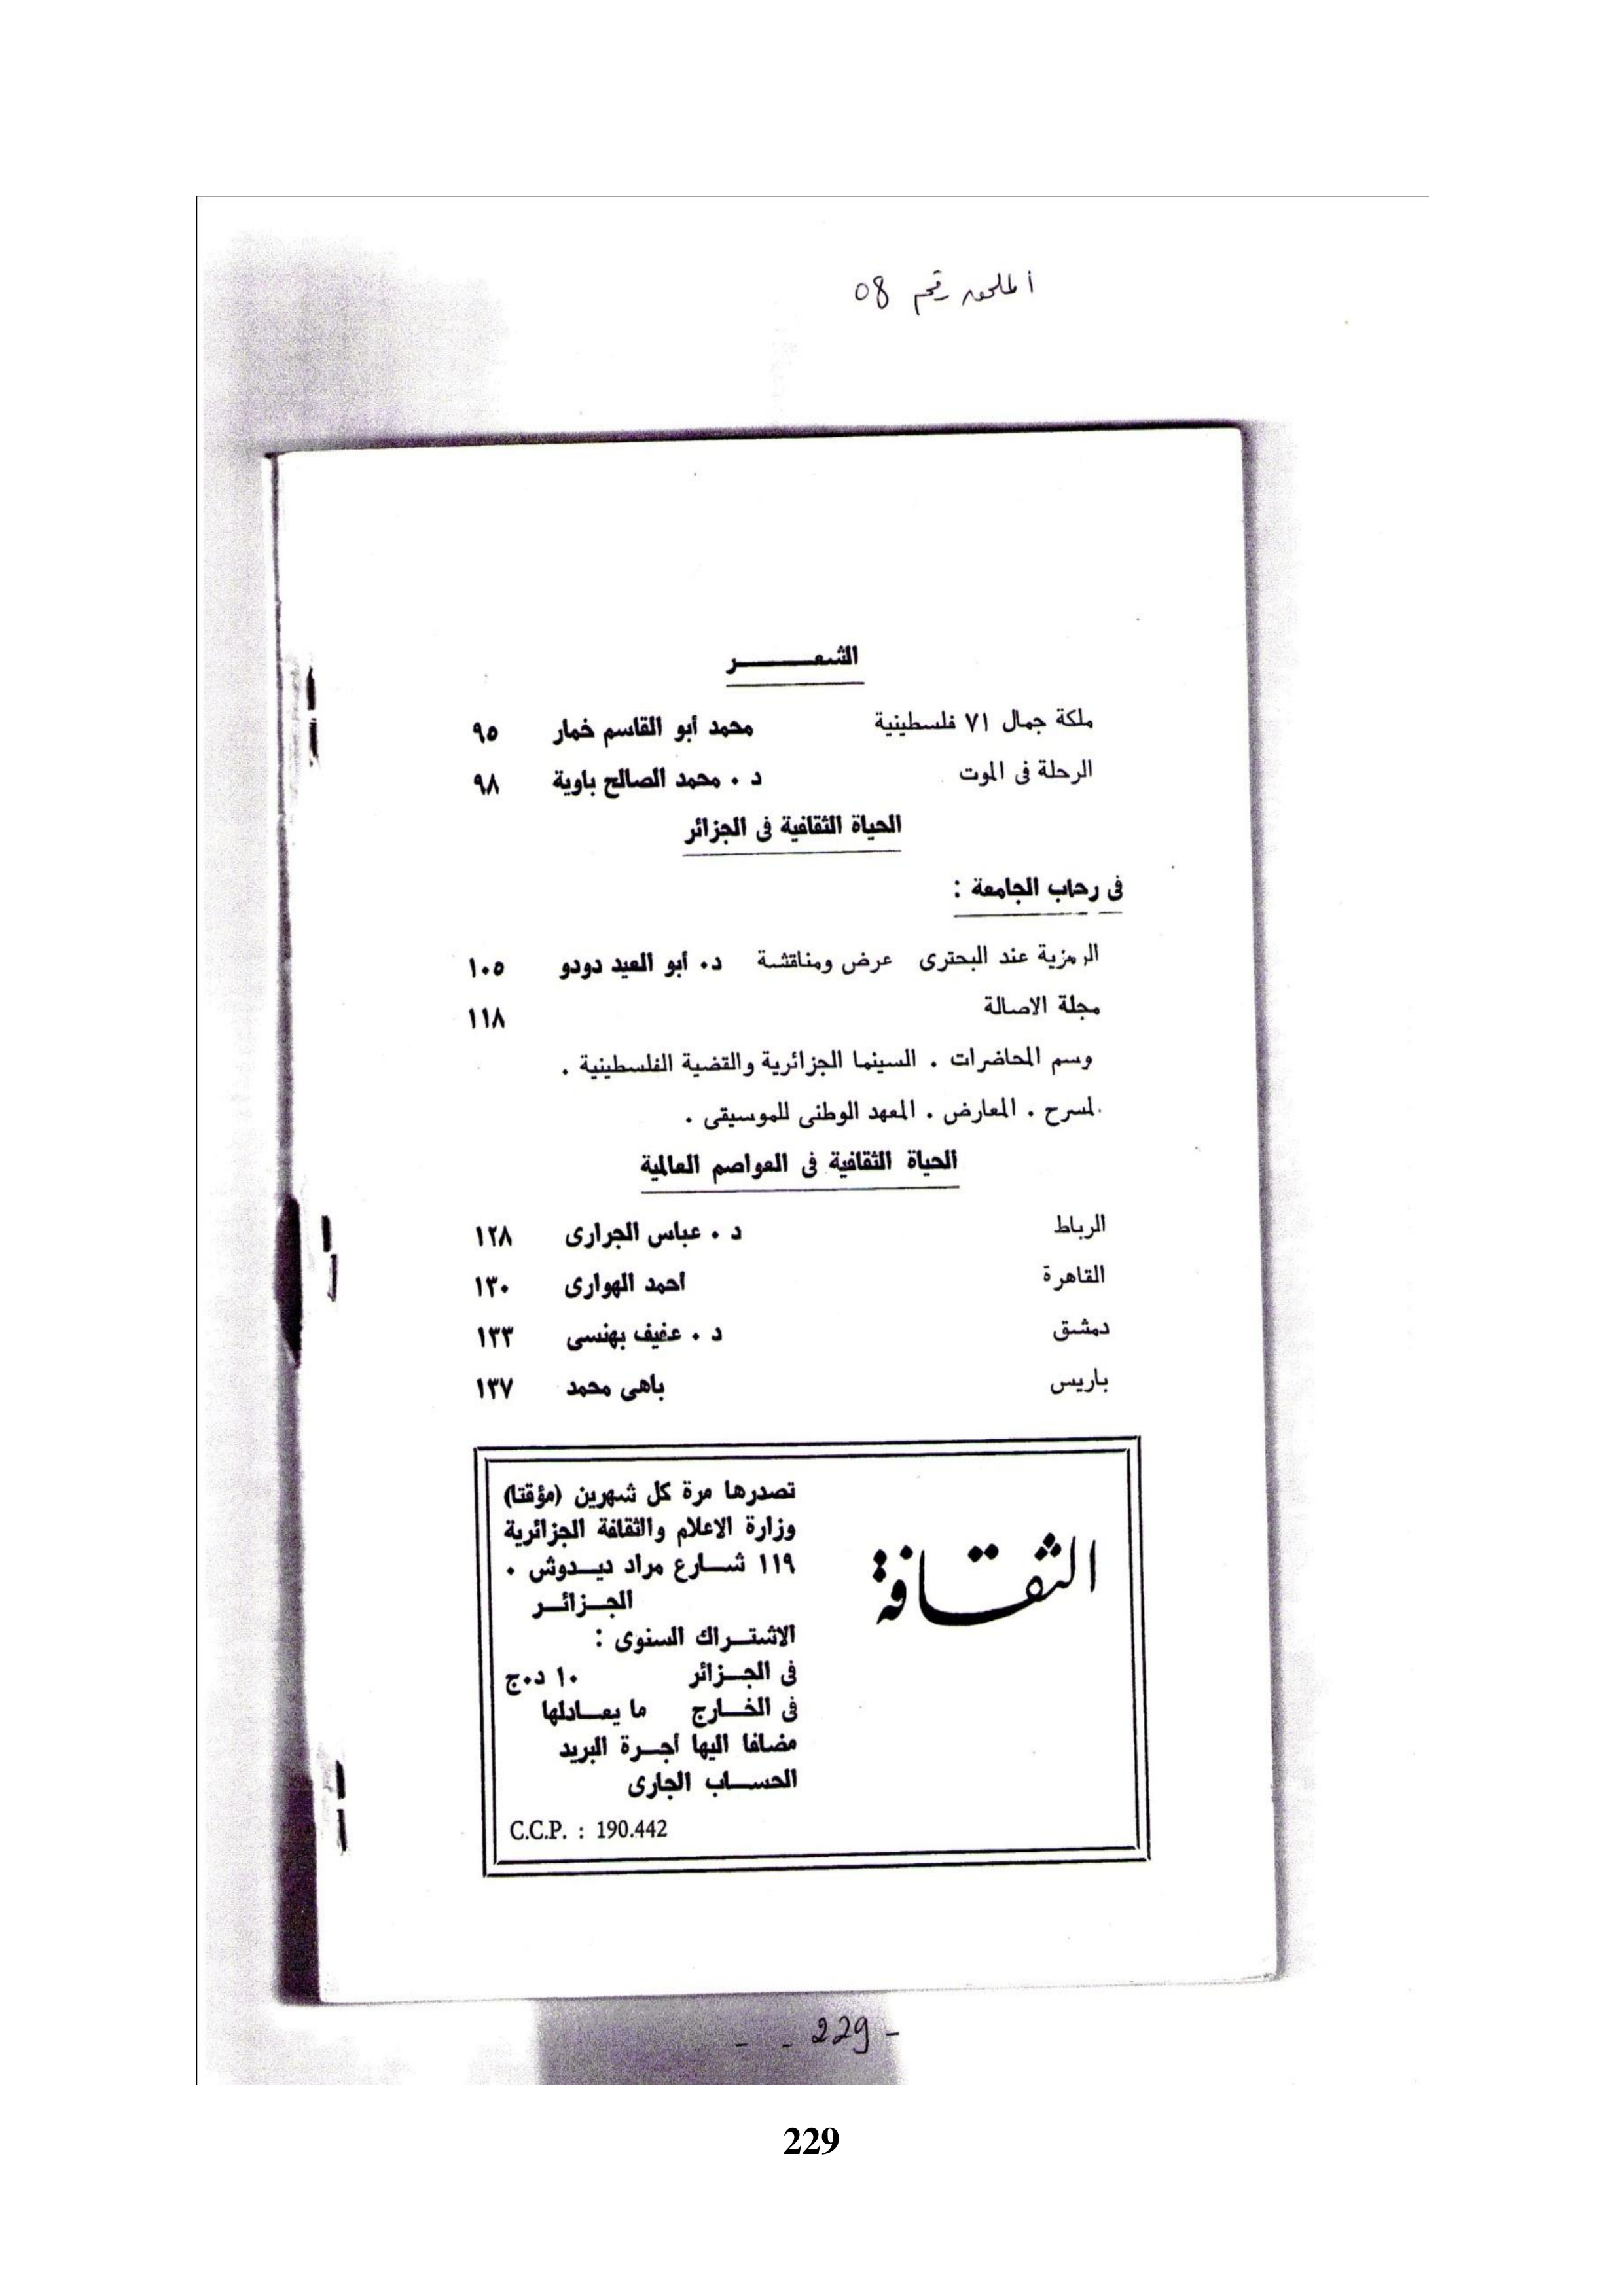 الملحق رقم 08
الشعـــــــر
ملكة جمال ٧١ فلسطينية محمد أبو القاسم خمار ٩٥
الرحلة فى الموت د . محمد الصالح باوية ٩٨
الحياة الثقافية فى الجزائر
فى رحاب الجامعة :
الرمزية عند البحترى عرض ومناقشة د. أبو العيد دودو ١٠٥
مجلة الاصالة ١١٨
وسم المحاضرات . السينما الجزائرية والقضية الفلسطينية .
لمسرح . المعارض . المعهد الوطنى للموسيقى .
الحياة الثقافية فى العواصم العالمية
الرباط د . عباس الجرارى ١٢٨
القاهرة أحمد الهوارى ١٣٠
دمشق د . عفيف بهنسى ١٣٣
باريس باهى محمد ١٣٧
الثقافة
تصدرها مرة كل شهرين (مؤقتا)
وزارة الاعلام والثقافة الجزائرية
١١٩ شـــارع مراد ديـــدوش .
الجـــزائـــر
الاشتـــراك السنوى :
فى الجـــزائر ١٠ د.ج
فى الخـــارج ما يعـــادلها
مضافا اليها أجـــرة البريد
الحســـاب الجارى
C.C.P. : 190.442
- - 229 -
229